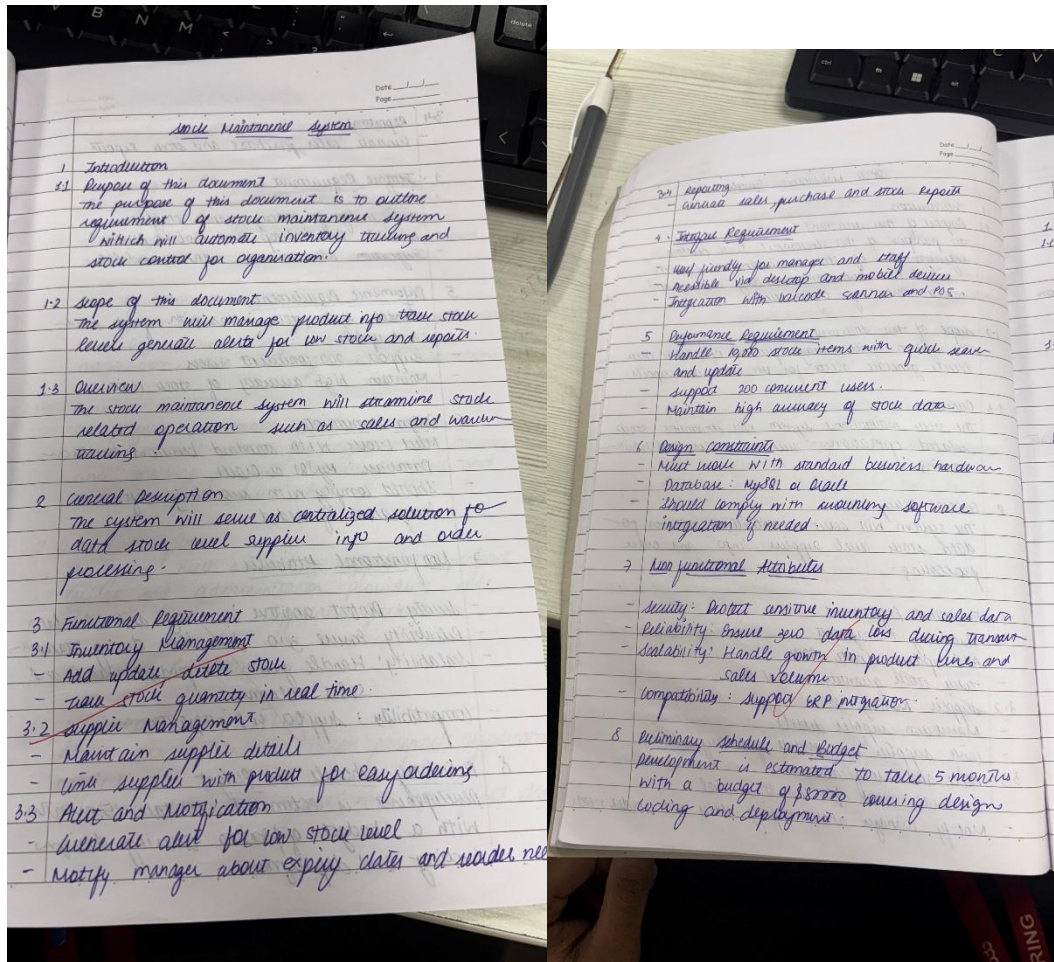 Date
Page
Stock Maintanence System
1 Introduction
1.1 Purpose of this document
The purpose of this document is to outline
requirement of stock maintanence system
which will automate inventory tracking and
stock control for organisation.
1.2 Scope of this document
The system will manage product info track stock
levels generate alerts for low stock and reports.
1.3 Overview
The stock maintanence system will streamline stock
related operation such as sales and
tracking.
2 General Description
The system will serve as centralized solution fo
data stock level supplier info and order
processing.
3 Functional Requirement
3.1 Inventory Management
- Add update delete stock
- Track stock quantity in real time.
3.2 Supplier Management
- Maintain supplier details
- Link supplier with product for easy ordering
3.3 Alert and Notification
- Generate alert for low stock level
- Notify manager about expiry dates and reorder nee
Date
Page
3.4 Reporting
- Generate sales, purchase and stock reports
4. Requirement
- User friendly for manager and staff
- Accessible via desktop and mobile devices
- Integration with barcode scanner and POS.
5 Performance Requirement
- Handle 10,000 stock items with quick search
and update
- Support 200 concurrent users.
- Maintain high accuracy of stock data
6 Design Constraints
- Must work with standard business hardware
- Database: MySQL or Oracle
- Should comply with accounting software
integration if needed.
7 Non functional Attributes
- Security: Protect sensitive inventory and sales data
- Reliability: Ensure zero data loss during
- Scalability: Handle growth in product lines and
sales volume
- Compatibility: Support ERP integration.
8 Preliminary Schedule and Budget
Development is estimated to take 5 months
with a budget of $80000 covering design
coding and deployment.
RING